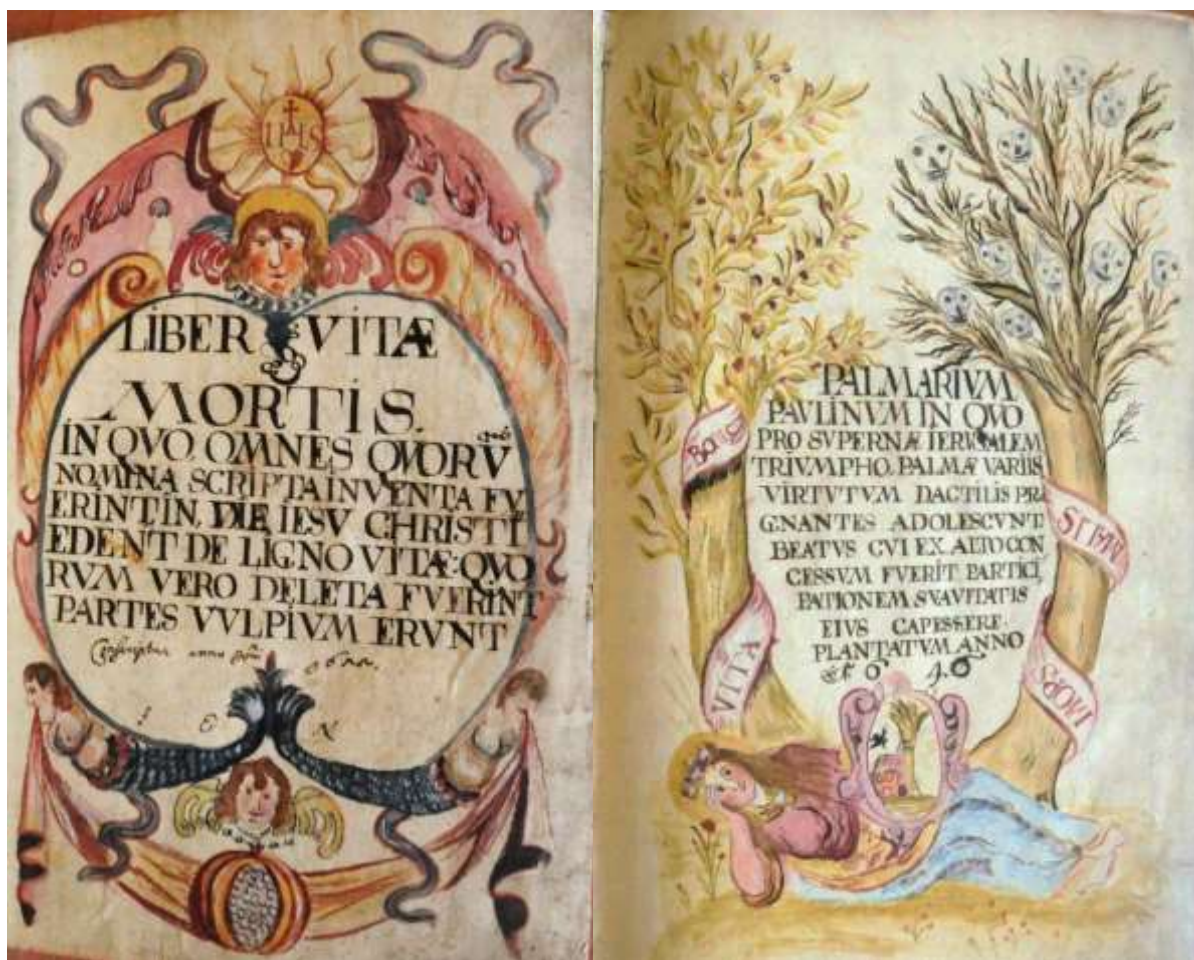 IHS
LIBER VITÆ
MORTIS.
IN QVO OMNES QVORŪ
NOMINA SCRIPTA INVENTA FV
ERINT IN DIE IESV CHRISTI
EDENT DE LIGNO VITÆ: QVO
RVM VERO DELETA FVERINT
PARTES VVLPIVM ERVNT
Conscriptus anno
I E N
PALMARIVM
PAVLINVM IN QVO
PRO SVPERNÆ IERUSALEM
TRIVMPHO PALMÆ VARIIS
VIRTVTVM DACTILIS PRÆ
GNANTES ADOLESCVNT
BEATVS CVI EX ALTO CON
CESSVM FVERIT PARTICI
PATIONEM SVAVITATIS
EIVS CAPESSERE
PLANTATVM ANNO
VITA
BONIS
MORS
EST MALIS